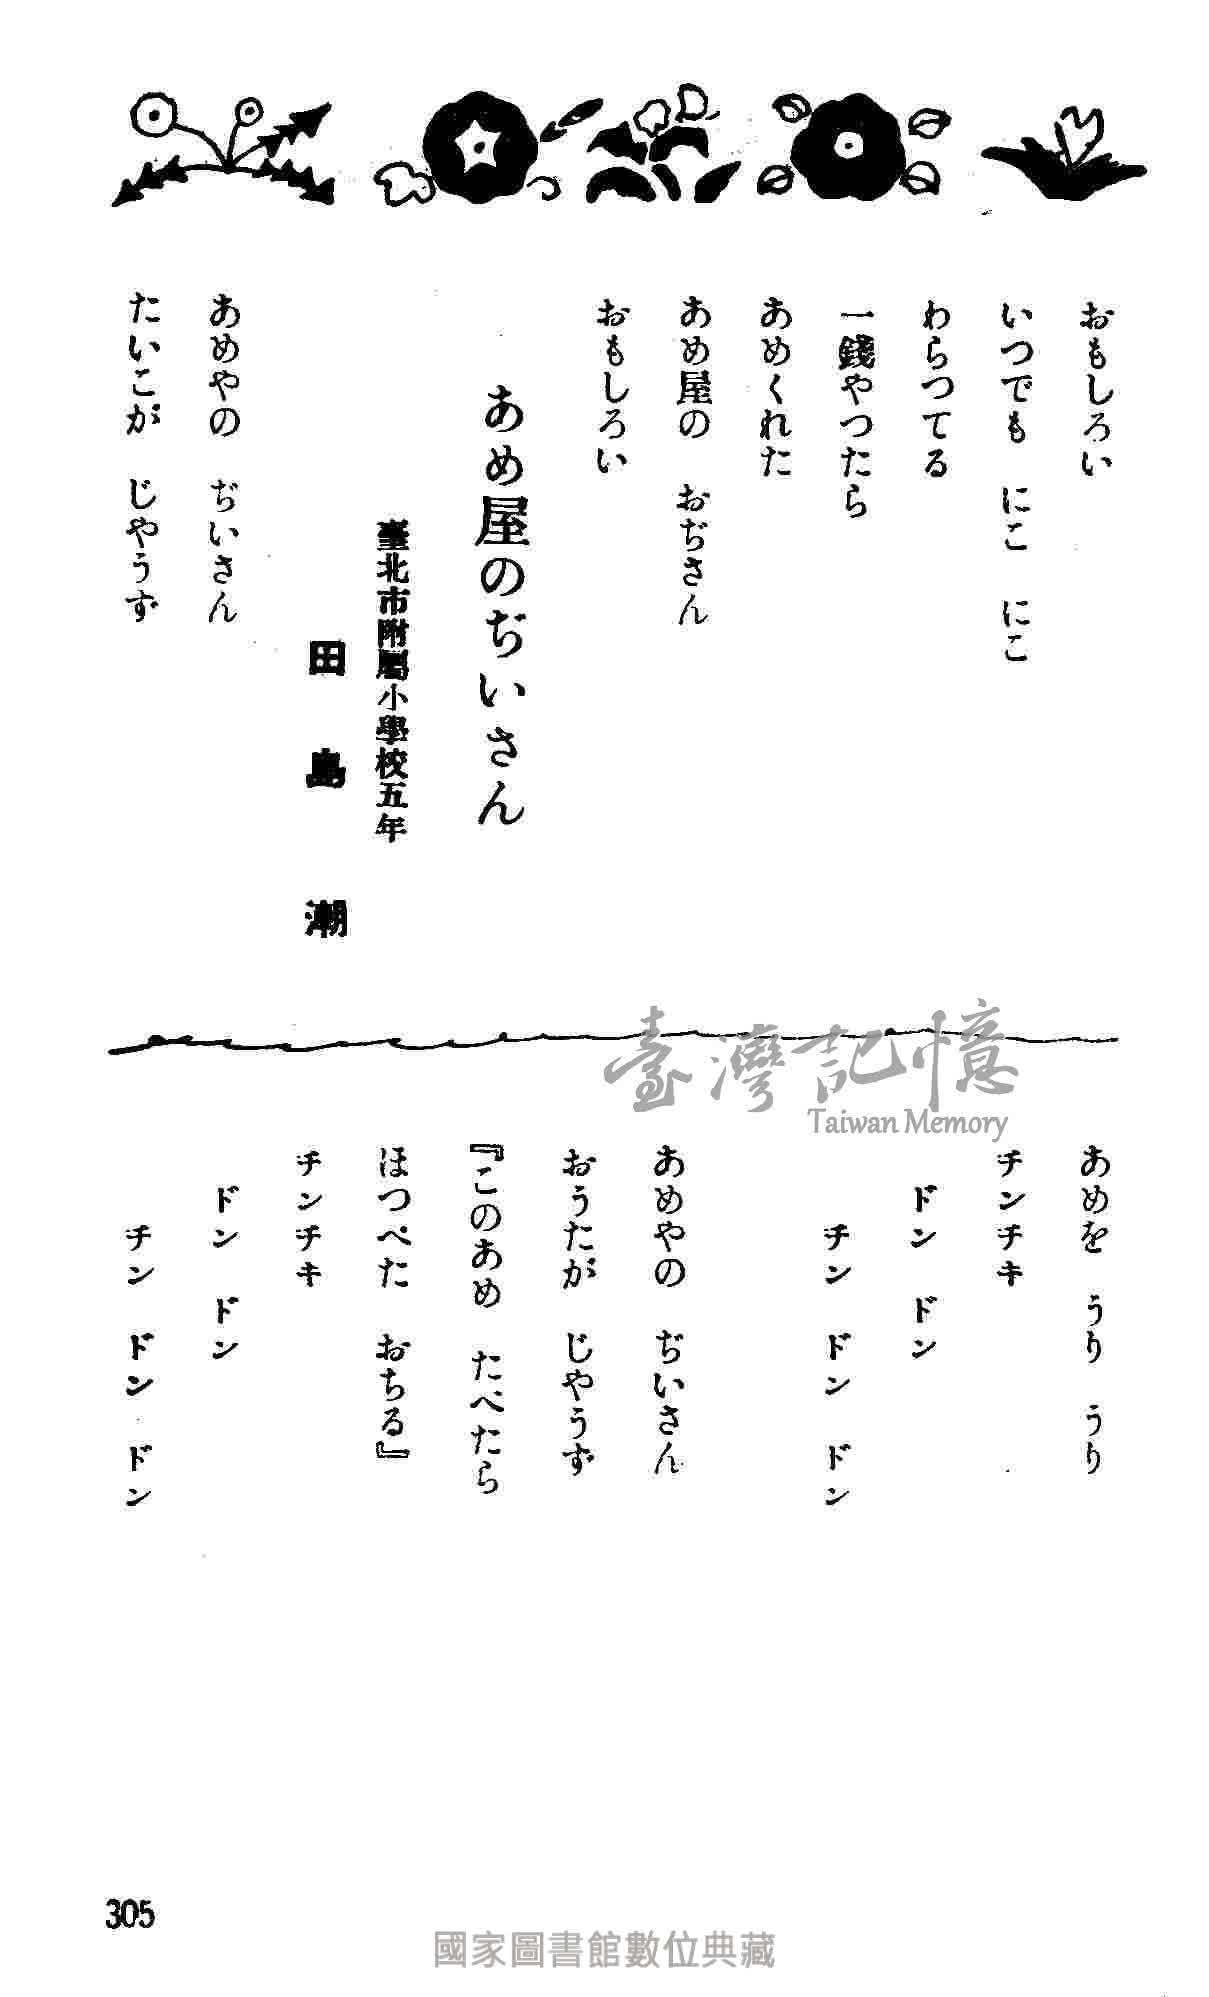 おもしろい
いつでも にこ にこ
わらつてる
一錢やつたら
あめくれた
あめ屋の おぢさん
おもしろい
あめ屋のぢいさん
臺北市附屬小學校五年
田島 潮
あめやの ぢいさん
たいこが じやうず
あめを うり うり
チンチキ
ドン ドン
チン ドン ドン
あめやの ぢいさん
おうたが じやうず
『このあめ たべたら
ほつぺた おちる』
チンチキ
ドン ドン
チン ドン ドン
臺灣記憶
Taiwan Memory
305
國家圖書館數位典藏